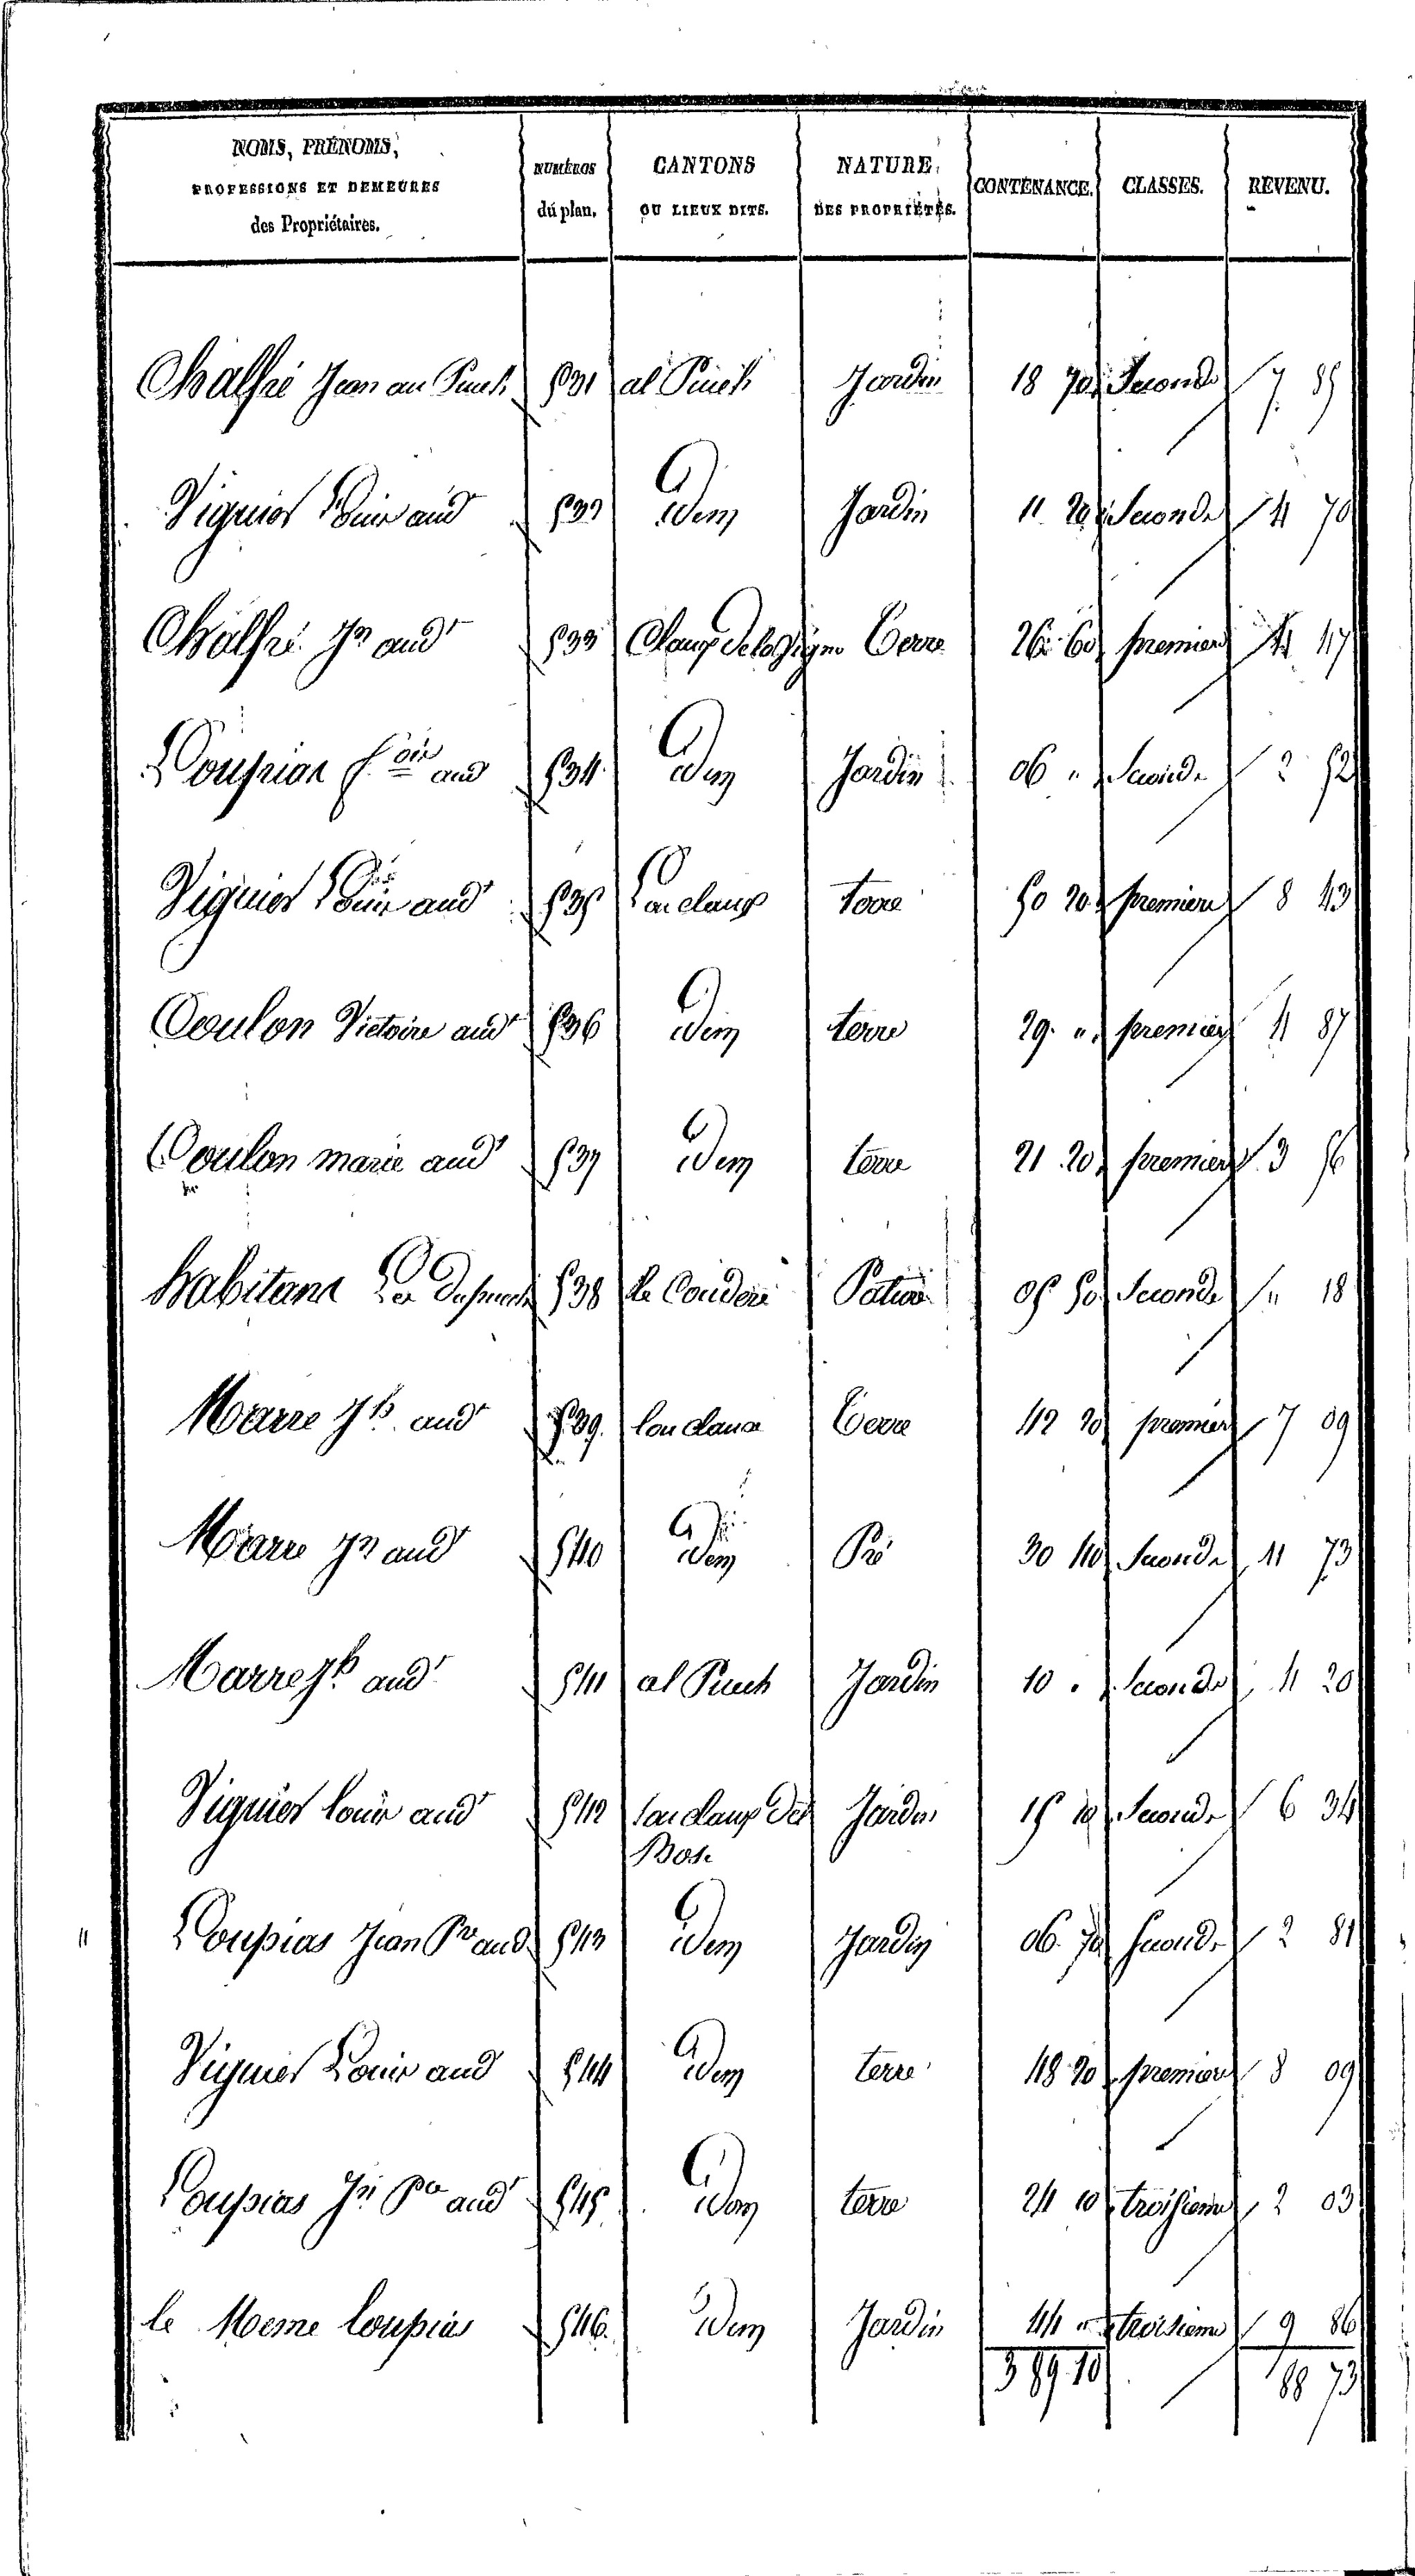 NOMS, PRÉNOMS, PROFESSIONS ET DEMEURES des Propriétaires. NUMÉROS du plan. CANTONS OU LIEUX DITS. NATURE DES PROPRIÉTÉS. CONTENANCE. CLASSES. REVENU.
Jean au Puech 531 al Puech Jardin 18 70 Seconde 7 85
Viguier Louis audt 532 idem Jardin 11 20 Seconde 4 70
Jn audt 533 Claux de la Vigne Terre 26 60 premiere 4 47
audt 534 idem Jardin 06 " Seconde 2 52
Viguier Louis audt 535 Lou claux terre 50 20 premiere 8 43
Coulon Victoire audt 536 idem terre 29 " premiere 4 87
Coulon marie audt 537 idem terre 21 20 premiere 3 56
habitans Les 538 le Couderc Patus 05 50 Seconde " 18
Marre Jh audt 539 lou claux Terre 42 20 premiere 7 09
Marre Jn audt 540 idem Pré 30 40 Seconde 11 73
Marre Jh audt 541 al Puech Jardin 10 " Seconde 4 20
Viguier louis audt 542 lou claux del Jardin 15 10 Seconde 6 34
Bosc
Loupias Jean Pre audt 543 idem Jardin 06 70 Seconde 2 81
Viguier Louis audt 544 idem terre 48 20 premiere 8 09
Loupias Jn Pre audt 545 idem terre 24 10 troisieme 2 03
le Meme loupias 546 idem Jardin 44 " troisieme 9 86
3 89 10 88 73